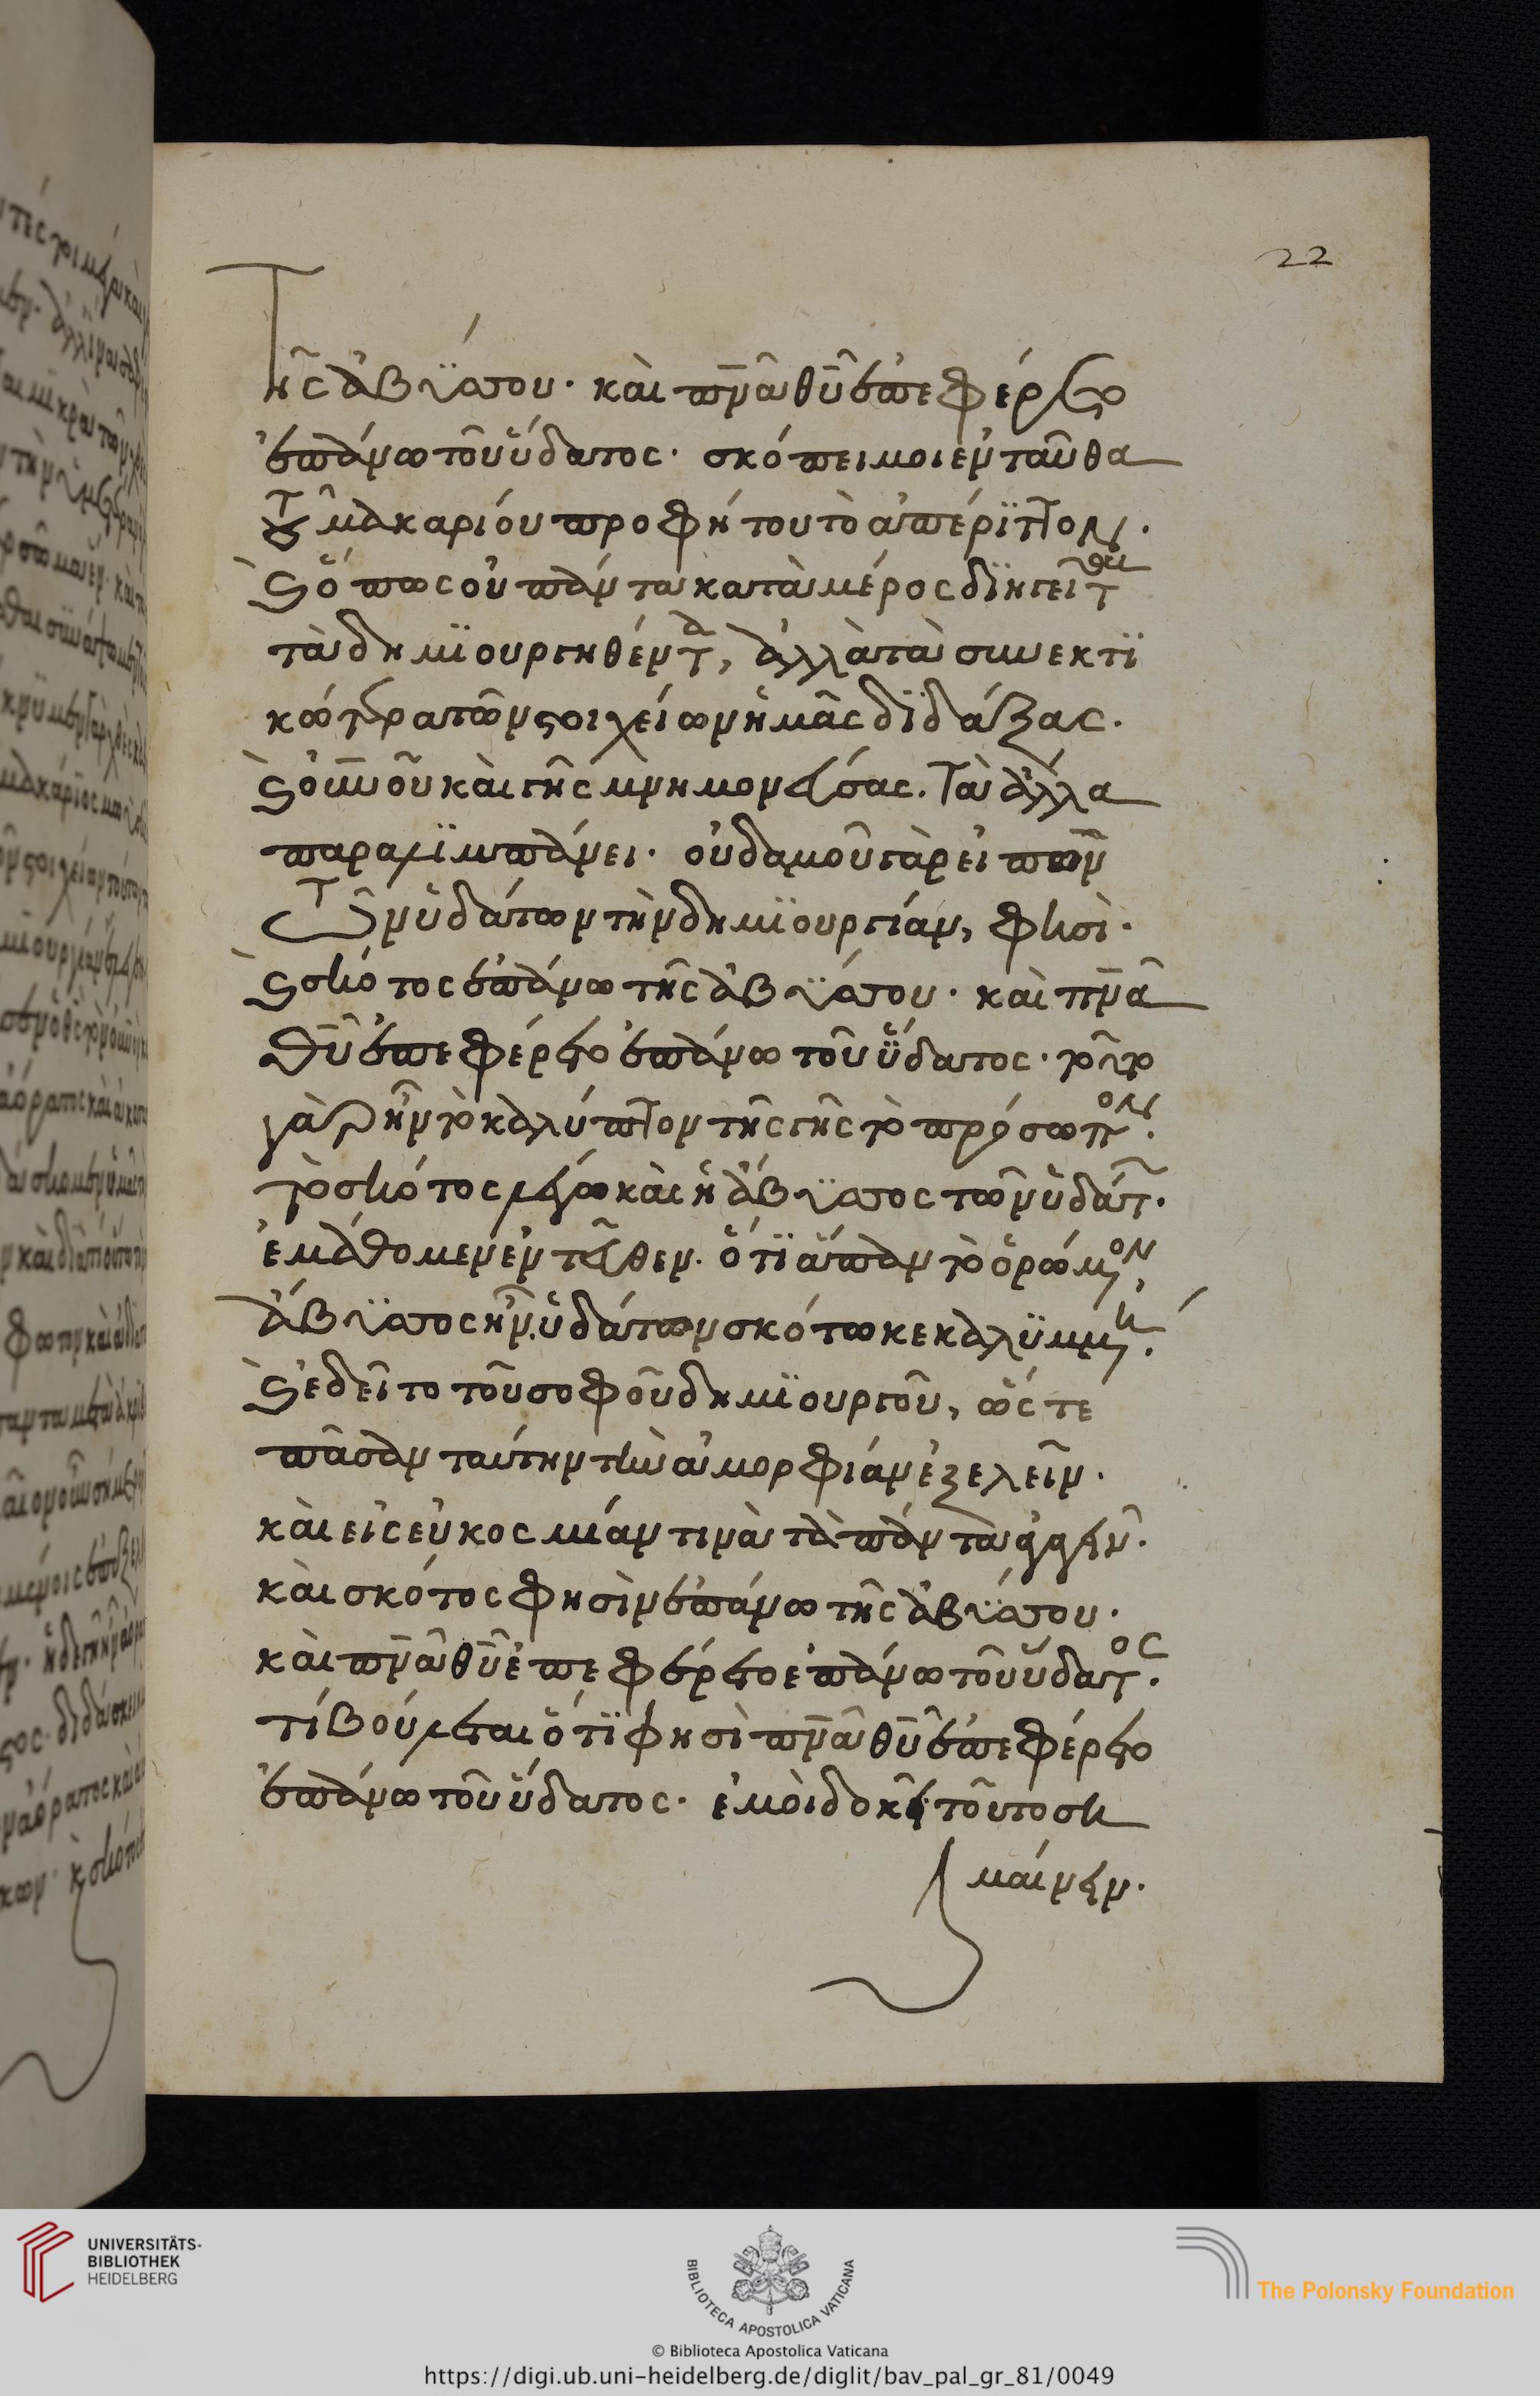 22
τῆς ἀβύσσου· καὶ πνᾶ θῦ ἐπεφέρετο
ἐπάνω τοῦ ὕδατος· σκόπει μοι ἐνταῦθα
τοῦ μακαρίου προφήτου τὸ ἀπέριττον·
καὶ ὅπως οὐ πάντα κατὰ μέρος διηγεῖται
τὰ δημιουργηθέντα, ἀλλὰ τὰ συνεκτι
κώτερα τῶν στοιχείων ἡμᾶς διδάξας·
καὶ οὐνοῦ καὶ γῆς μνημονεύσας. Τὰ ἄλλα
παραλιμπάνει· οὐδαμοῦ γὰρ εἰπὼν
τῶν ὑδάτων τὴν δημιουργίαν, φησὶ·
καὶ σκότος ἐπάνω τῆς ἀβύσσου· καὶ πνᾶ
θῦ ἐπεφέρετο ἐπάνω τοῦ ὕδατος· τοῦτο
γὰρ ἦν τὸ καλύπτον τῆς γῆς τὸ πρόσωπον·
τὸ σκότος λέγω καὶ ἡ ἄβυσσος τῶν ὑδάτων·
ἐμάθομεν ἐντεῦθεν· ὅτι ἅπαν τὸ ὁρώμενον,
ἄβυσσος ἦν ὑδάτων σκότω κεκαλυμμένη·
καὶ ἐδεῖτο τοῦ σοφοῦ δημιουργοῦ, ὥστε
πᾶσαν ταύτην τὴν ἀμορφίαν ἐξελεῖν·
καὶ εἰς εὐκοσμίαν τινὰ τὰ πάντα ἀγαγεῖν·
καὶ σκότος φησὶν ἐπάνω τῆς ἀβύσσου·
καὶ πνᾶ θῦ ἐπεφέρετο ἐπάνω τοῦ ὕδατος·
τί βούλεται ὅτι φησὶ πνᾶ θῦ ἐπεφέρετο
ἐπάνω τοῦ ὕδατος· ἐμοὶ δοκεῖ τοῦτο ση
μαίνειν·
UNIVERSITÄTS-
BIBLIOTHEK
HEIDELBERG
BIBLIOTECA APOSTOLICA VATICANA
The Polonsky Foundation
© Biblioteca Apostolica Vaticana
https://digi.ub.uni-heidelberg.de/diglit/bav_pal_gr_81/0049